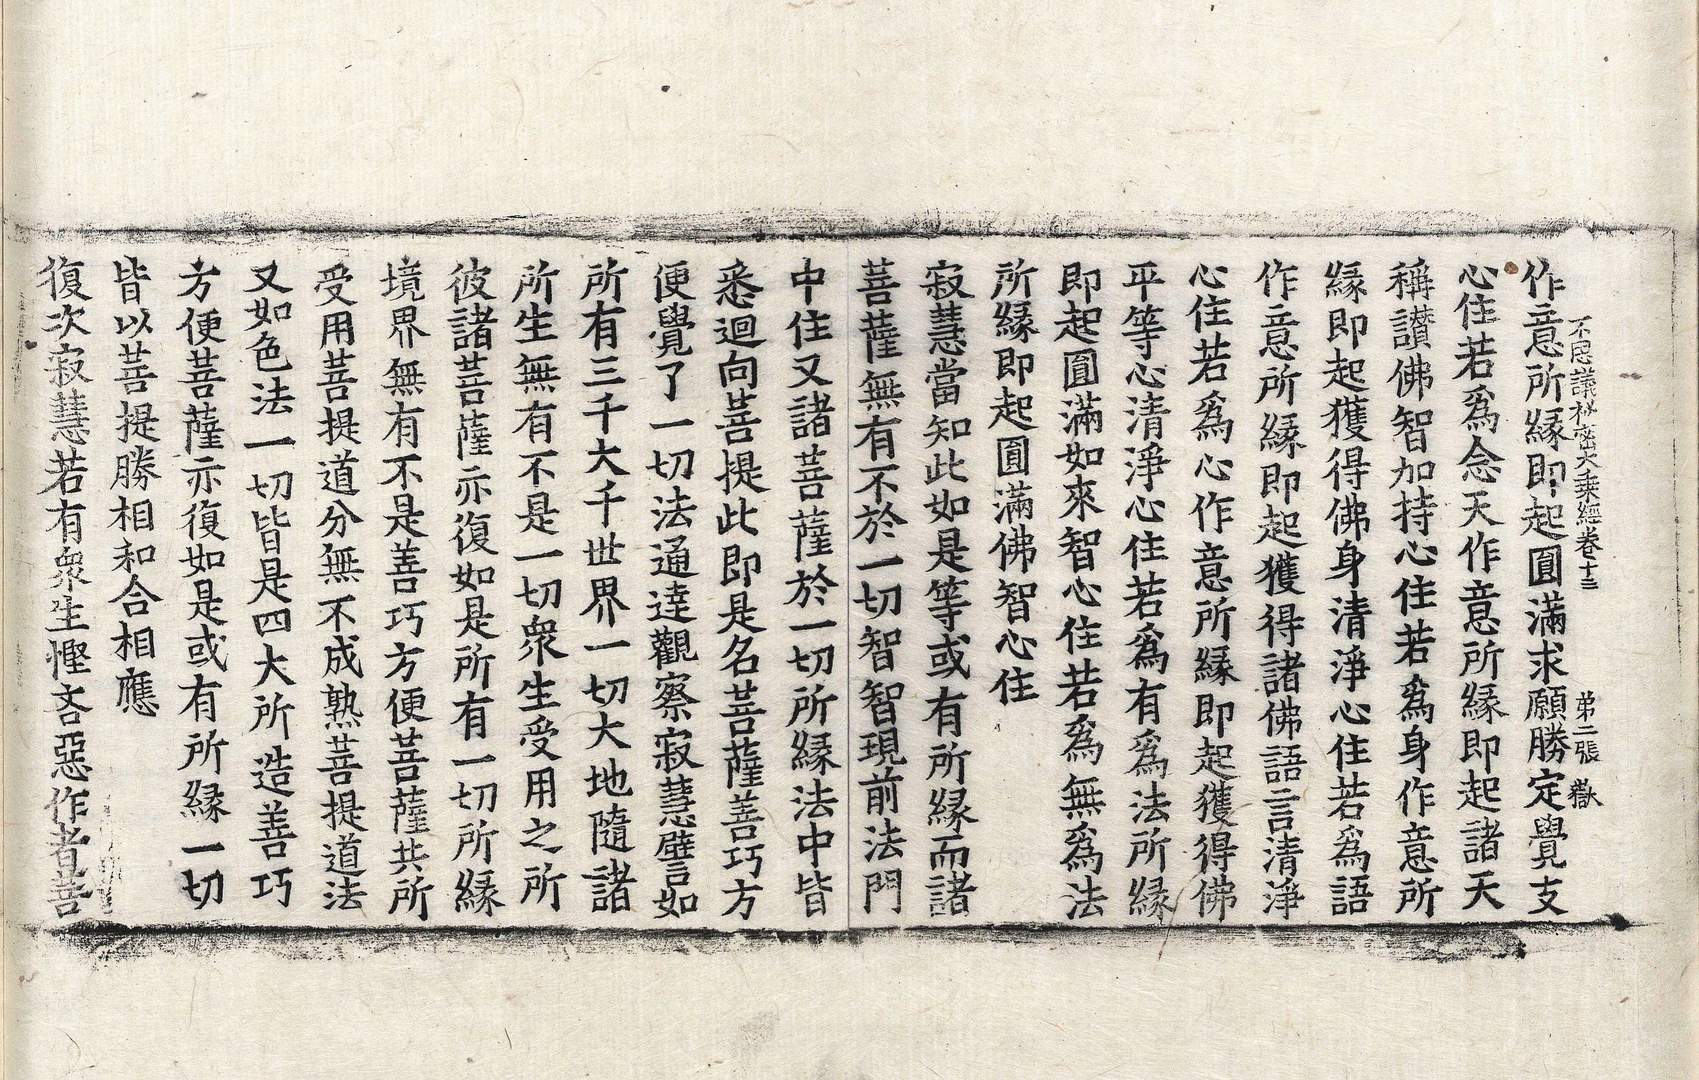 不思議秘密大乘經卷十三　第二張　嶽
作意所緣即起圓滿求願勝定覺支
心住若爲念天作意所緣即起諸天
稱讃佛智加持心住若爲身作意所
緣即起獲得佛身清淨心住若爲語
作意所緣即起獲得諸佛語言清淨
心住若爲心作意所緣即起獲得佛
平等心清淨心住若爲有爲法所緣
即起圓滿如來智心住若爲無爲法
所緣即起圓滿佛智心住
寂慧當知此如是等或有所緣而諸
菩薩無有不於一切智智現前法門
中住又諸菩薩於一切所緣法中皆
悉迴向菩提此即是名菩薩善巧方
便覺了一切法通達觀察寂慧譬如
所有三千大千世界一切大地隨諸
所生無有不是一切衆生受用之所
彼諸菩薩亦復如是所有一切所緣
境界無有不是善巧方便菩薩共所
受用菩提道分無不成熟菩提道法
又如色法一切皆是四大所造善巧
方便菩薩亦復如是或有所緣一切
皆以菩提勝相和合相應
復次寂慧若有衆生慳吝惡作者菩